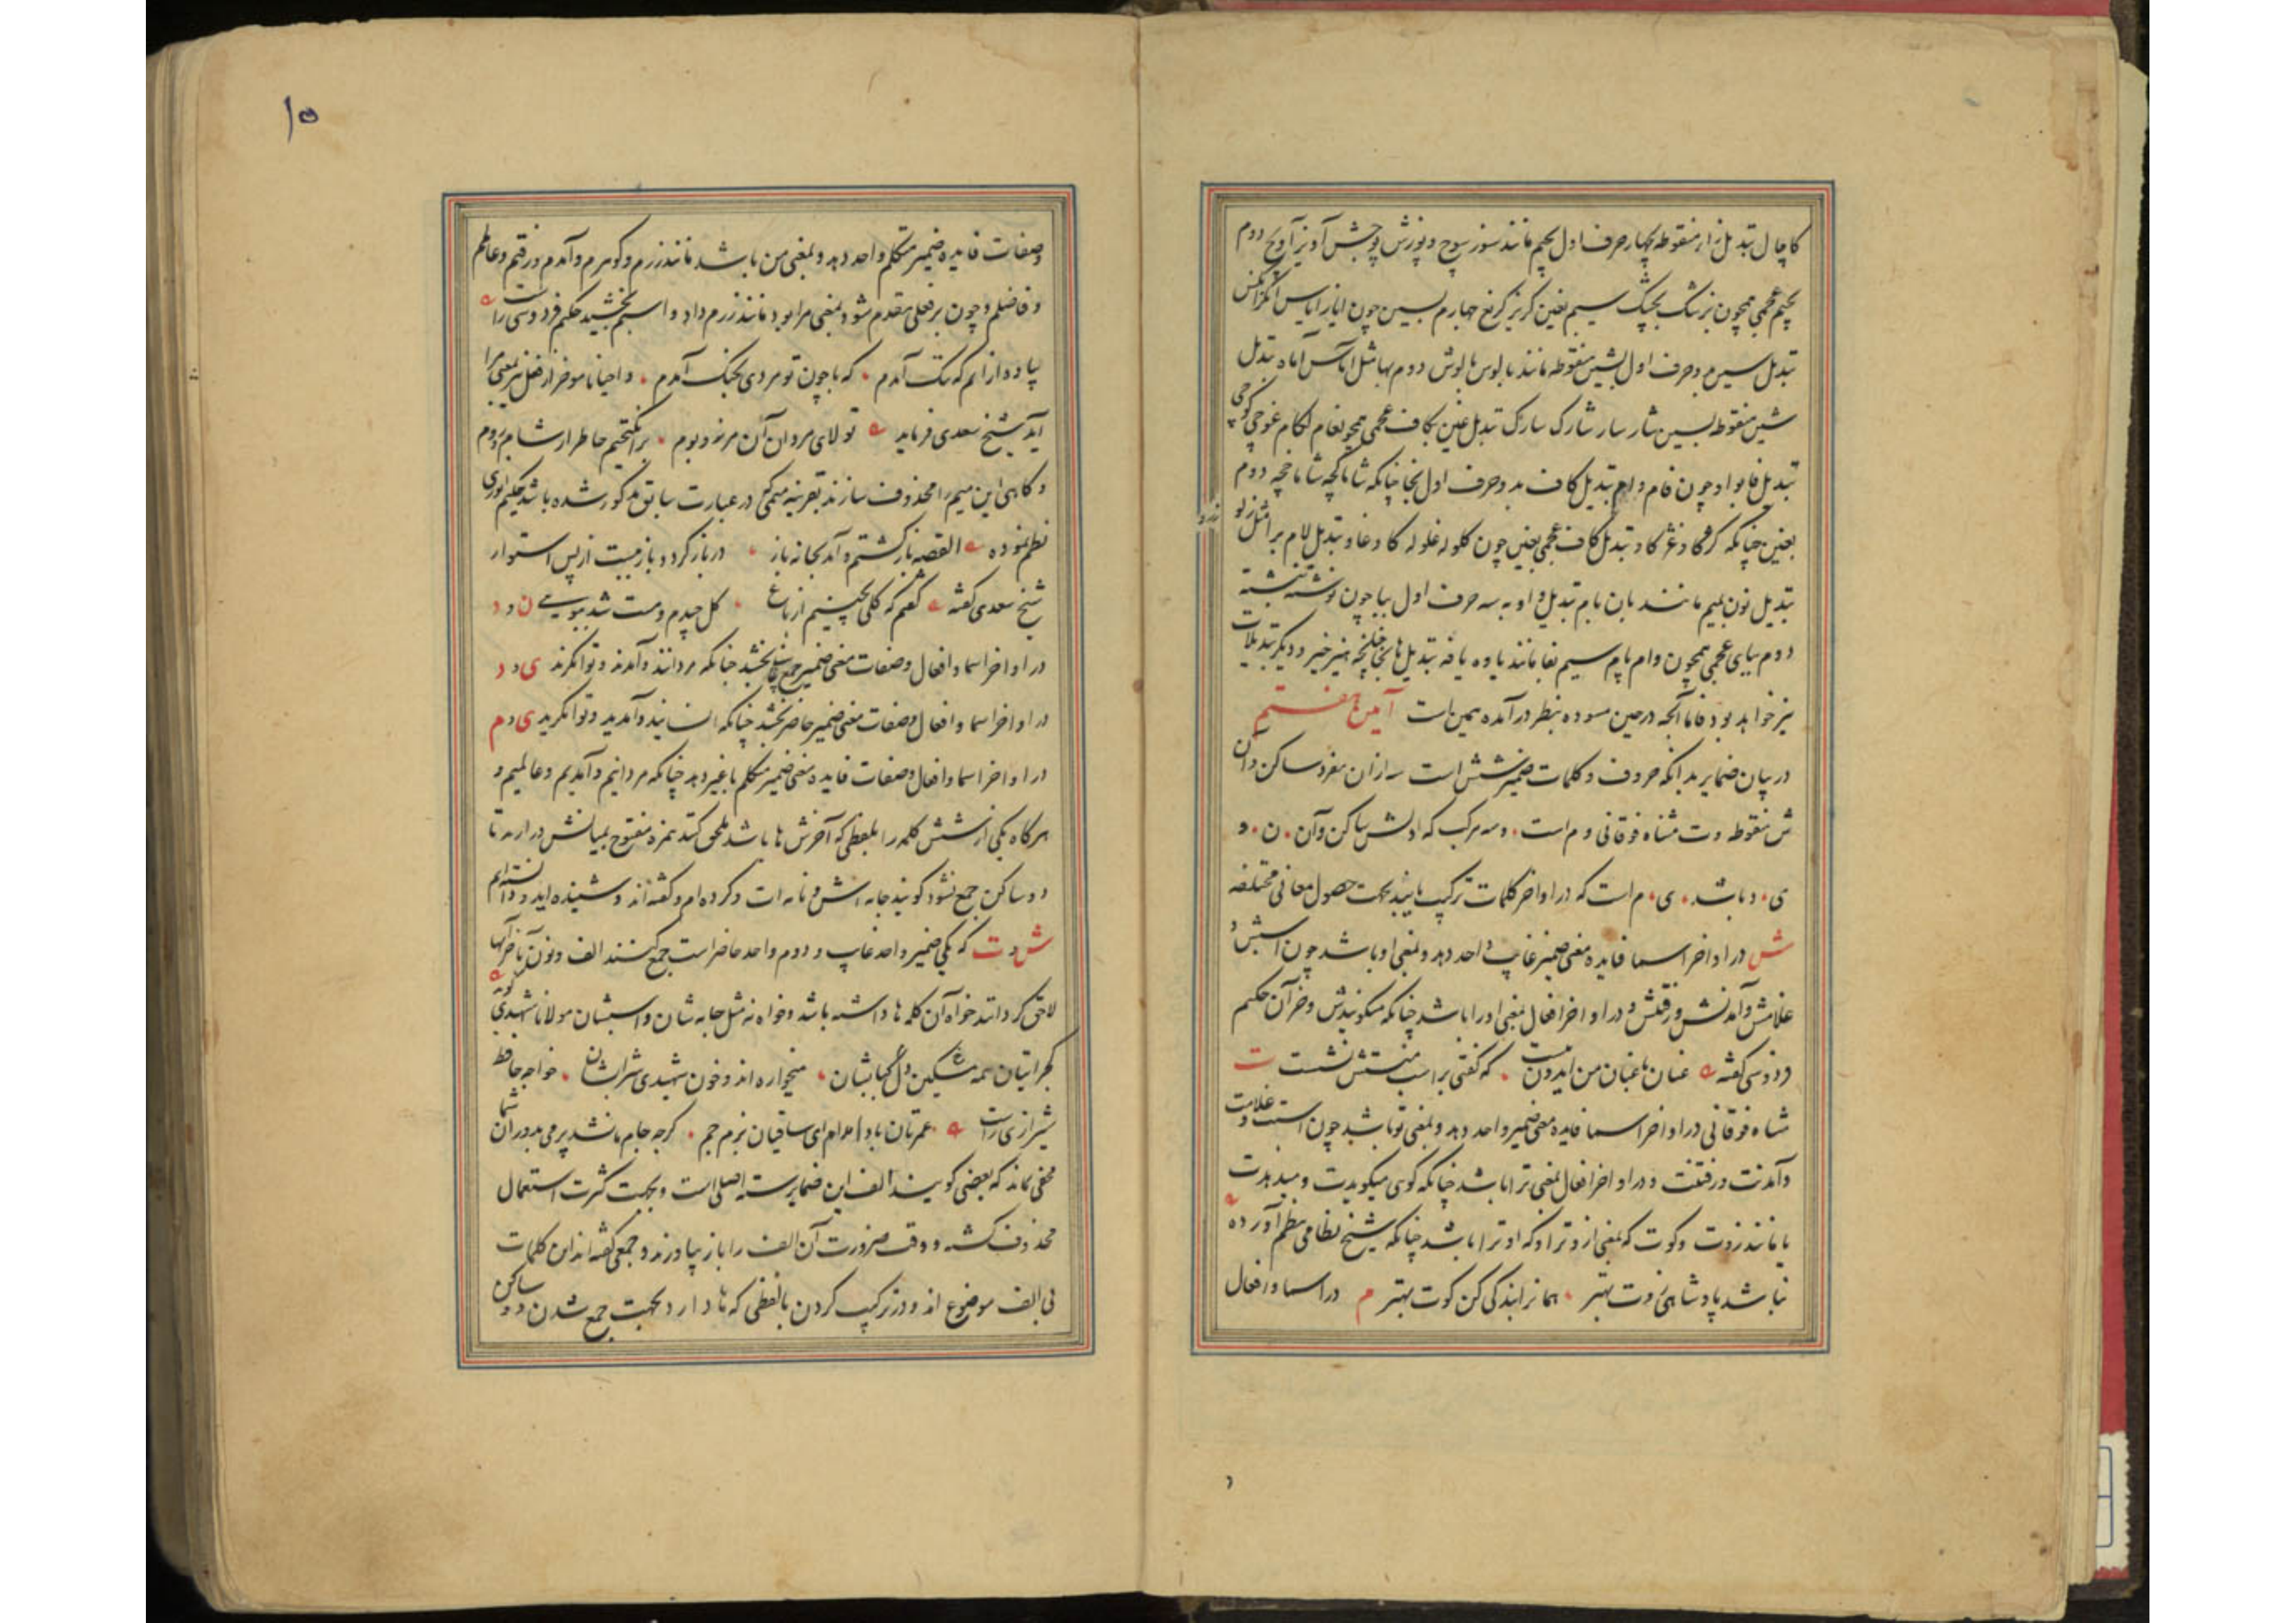 کاچال تبدیل زاء منقوطه بچهار حرف اول بجیم مانند سوز سوج و پوزش پوجش آویز آویج دوم
بجیم عجمی همچون بزشک بجشک سیم بغین گریز گریغ چهارم بسین چون ایاز ایاس انگز انگس
تبدیل سین بدو حرف اول بشین منقوطه مانند بالوس بالوش دوم بها مثل آماس آماه تبدیل
شین منقوطه بسین شار سار شارک سارک تبدیل غین بکاف عجمی همچو لغام لگام غوچی گوچی
تبدیل فا بواو چون فام وام تبدیل کاف بدو حرف اول بخا چنانکه شاماکچه شاماخچه دوم
بغین چنانکه کژکاو غژکاو تبدیل کاف عجمی بغین چون گلوله غلوله گاو غاو تبدیل لام برا مثل زلو
زرو
تبدیل نون بمیم مانند بان بام تبدیل واو به سه حرف اول ببا چون نوشته نبشته
دوم ببای عجمی همچون وام پام سیم بفا مانند یاوه یافه تبدیل ها بخا هیز خیز و دیگر تبدیلات
نیز خواهد بود فاما آنچه در حین مسوده بنظر در آمده همین است آیین هفتم
در بیان ضمایر بدانکه حروف و کلمات ضمیر شش است سه ازان مفرد ساکن و آن
ش منقوطه و ت مثناه فوقانی و م است و سه مرکب که اولش ساکن و آن ن و
ی د باشد ی م است که در اواخر کلمات ترکیب یابند بجهت حصول معانی مختلفه
ش در اواخر اسما فایده معنی ضمیر غایب واحد دهد و بمعنی او باشد چون اسپش و
غلامش و آمدنش و رفتنش و در اواخر افعال بمعنی او را باشد چنانکه میگویندش و خر آن حکیم
فردوسی گفته عنان با عنان من ایدون ببست که گفتی بر اسب منستش نشست ت
مثناه فوقانی در اواخر اسما فایده معنی ضمیر واحد دهد و بمعنی تو باشد چون اسپت و غلامت
و آمدنت و رفتنت و در اواخر افعال بمعنی ترا باشد چنانکه گوی میگویدت و میدهدت
یا مانند زوت و کوت که بمعنی از و ترا و که او ترا باشد چنانکه شیخ نظامی بنظم آورده
نباشد پادشاهی زوت بهتر همانرا بندگی کن کوت بهتر م در اسما و افعال
۱۵
وصفات فایده ضمیر متکلم واحد دهد و بمعنی من باشد مانند زرم و گوهرم و آمدم و رفتم و عالمم
و فاضلم و چون بر فعلی مقدم شود بمعنی مرا بود مانند زرم داد و اسبم بخشید حکیم فردوسی راست
پیاده ازانم که تنگ آمدم که با چون تو مردی بجنگ آمدم و احیانا موخر از فعل نیز بمعنی مرا
آید شیخ سعدی فرماید تولای مردان آن مرز و بوم برانگیختم خاطر از شام و روم
و گاهی این میم را محذوف سازند بقرینه میمی که در عبارت سابق مذکور شده باشد حکیم انوری
نظم نموده القصه باز گشتم و آمد بخانه باز در باز کرد و باز ببست از پس استوار
شیخ سعدی گفته گفتم که گلی بچینم از باغ گل چیدم و مست شد ببویی ن و د
در اواخر اسما و افعال وصفات معنی ضمیر جمع غایب بخشد چنانکه مردانند و آمدند و توانگرند ی و د
در اواخر اسما و افعال وصفات معنی ضمیر حاضر بخشد چنانکه انسانید و آمدید و توانگرید ی و م
در اواخر اسما و افعال وصفات فایده معنی ضمیر متکلم با غیر دهد چنانکه مردانیم و آمدیم و عالمیم و
هرگاه یکی از شش کلمه را بلفظی که آخرش ها باشد ملحق کنند همزه مفتوح بمیانش در ارند تا
دو ساکن جمع نشود گویند جامه اش و نامه ات و کرده ام و گفته اند و شنیده اید و دانسته ایم
ش و ت که یکی ضمیر واحد غایب و دوم واحد حاضر است جمع کنند الف و نون بآخر آنها
لاحق گردانند خواه آن کلمه ها داشته باشد و خواه نه مثل جامه شان و اسپشان مولانا شهیدی گوید
گجراتیان همه مشکین دل کبابشان میخواره اند و خون شهیدی شرابشان خواجه حافظ
شیرازی راست عمرتان باد ا مدام ای ساقیان بزم جم گرچه جام ما نشد پر می بدوران شما
مخفی نماند که بعضی گویند الف این ضمایر سته اصلی است و بجهت کثرت استعمال
محذوف گشته و وقت ضرورت آن الف را باز بیاورند و جمعی گفته اند این کلمات
بی الف موضوع اند و در ترکیب کردن با لفظی که ها دارد بجهت جمع شدن دو ساکن